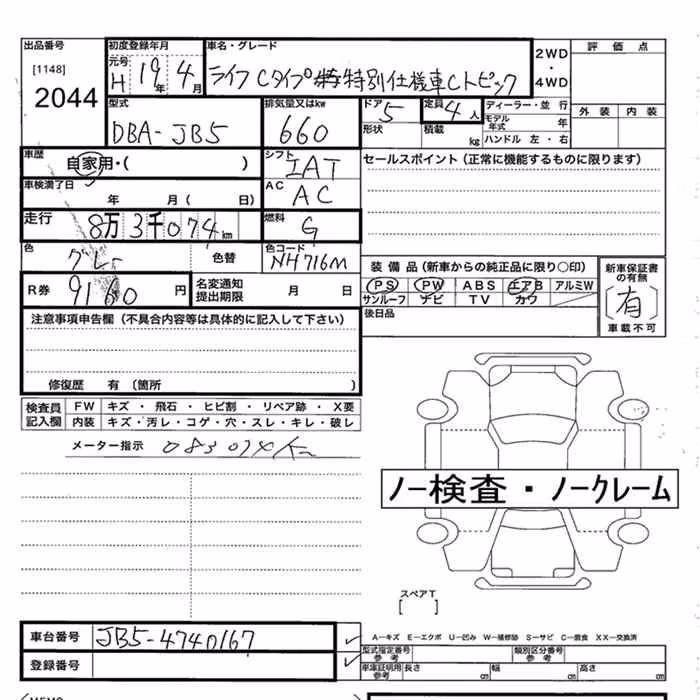 出品番号 初度登録年月 車名・グレード 評価点
[1148] 元号 2WD
2044 H 19年 4月 ライフ Cタイプ特別仕様車Cトピック ・ 4WD
型式 排気量又はkw ドア 定員 ディーラー・並行 外装 内装
DBA-JB5 660 5 4人 モデル年式 年
形状 積載 kg ハンドル 左・右
車歴 自家用・( ) シフト IAT セールスポイント(正常に機能するものに限ります)
車検満了日 年 月( 日) AC AC
走行 8万3千074km 燃料 G
色 グレー 色替 色コード NH716M
装備品(新車からの純正品に限り○印) 新車保証書の有無
R券 9160円 名変通知提出期限 月 日 PS PW ABS エアB アルミW [有]
サンルーフ ナビ TV カワ 車載不可
注意事項申告欄(不具合内容等は具体的に記入して下さい) 後日品
修復歴 有(箇所 )
検査員記入欄 FW キズ・飛石・ヒビ割・リペア跡・X要
内装 キズ・汚レ・コゲ・穴・スレ・キレ・破レ
メーター指示 083074K
ノー検査・ノークレーム
スペアT
[ ]
車台番号 JB5-4740167 A-キズ E-エクボ U-凹み W-補修跡 S-サビ C-腐食 XX-交換済
型式指定番号 参考 類別区分番号 参考
登録番号 車庫証明用参考 長さ cm 幅 cm 高さ cm